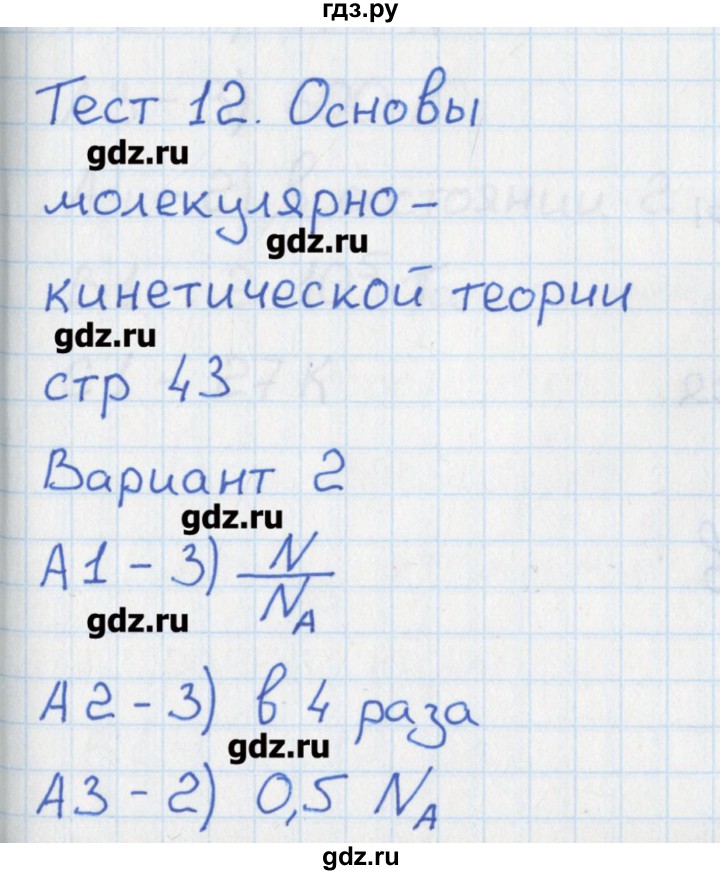 гдз.ру
Тест 12. Основы
gdz.ru
молекулярно-
gdz.ru
кинетической теории
gdz.ru
стр 43
Вариант 2
gdz.ru
А1 - 3) N/N_A
gdz.ru
А2 - 3) в 4 раза
gdz.ru
А3 - 2) 0,5 N_A
gdz.ru